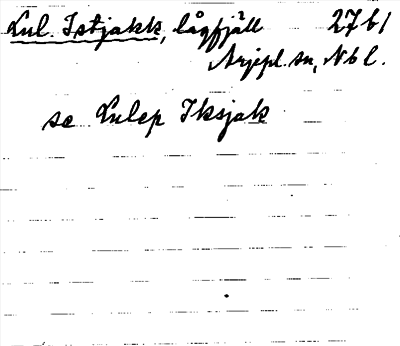 Lul. Istjakk, lågfjäll 27 b 1
Arjepl. sn, Nbl.
se Lulep Iksjak